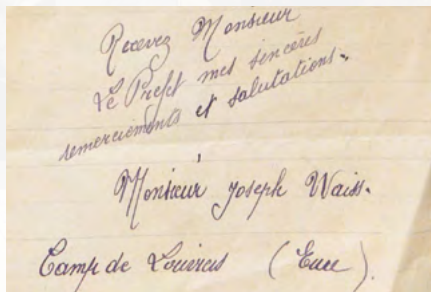 Recevez Monsieur
Le Préfet mes sincères
remerciements et salutations.
Monsieur Joseph Waiss.
Camp de Louviers (Eure).